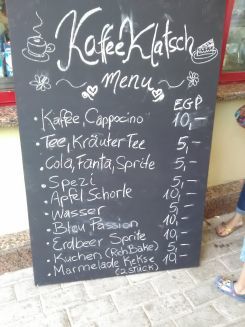 Kaffee Klatsch
menu
EGP
· Kaffe, Cappocino 10,-
· Tee, Kräuter Tee 5,-
· Cola, Fanta, Sprite 5,-
· Spezi 5,-
· Apfel Schorle 10,-
· Wasser 5,-
· Bleu Passion 10,-
· Erdbeer Sprite 10,-
· Kuchen 5,-
· Marmelade Kekse 10,-
(2 Stück)